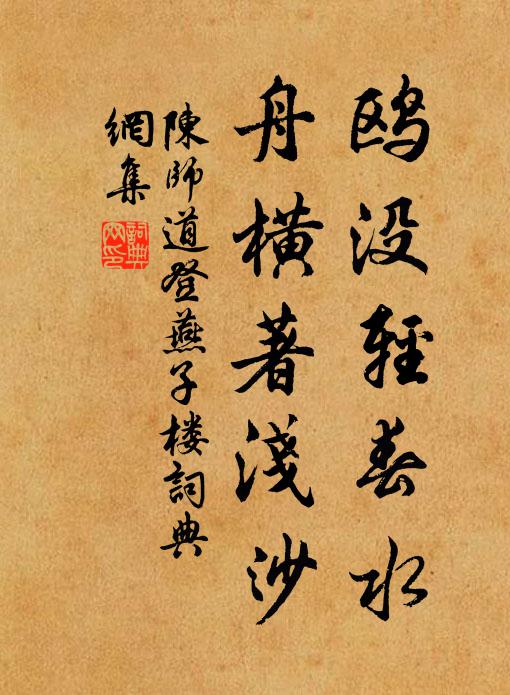 鸥没轻春水
舟橫著淺沙
陳師道登燕子楼詞典
網集
詞典
网印